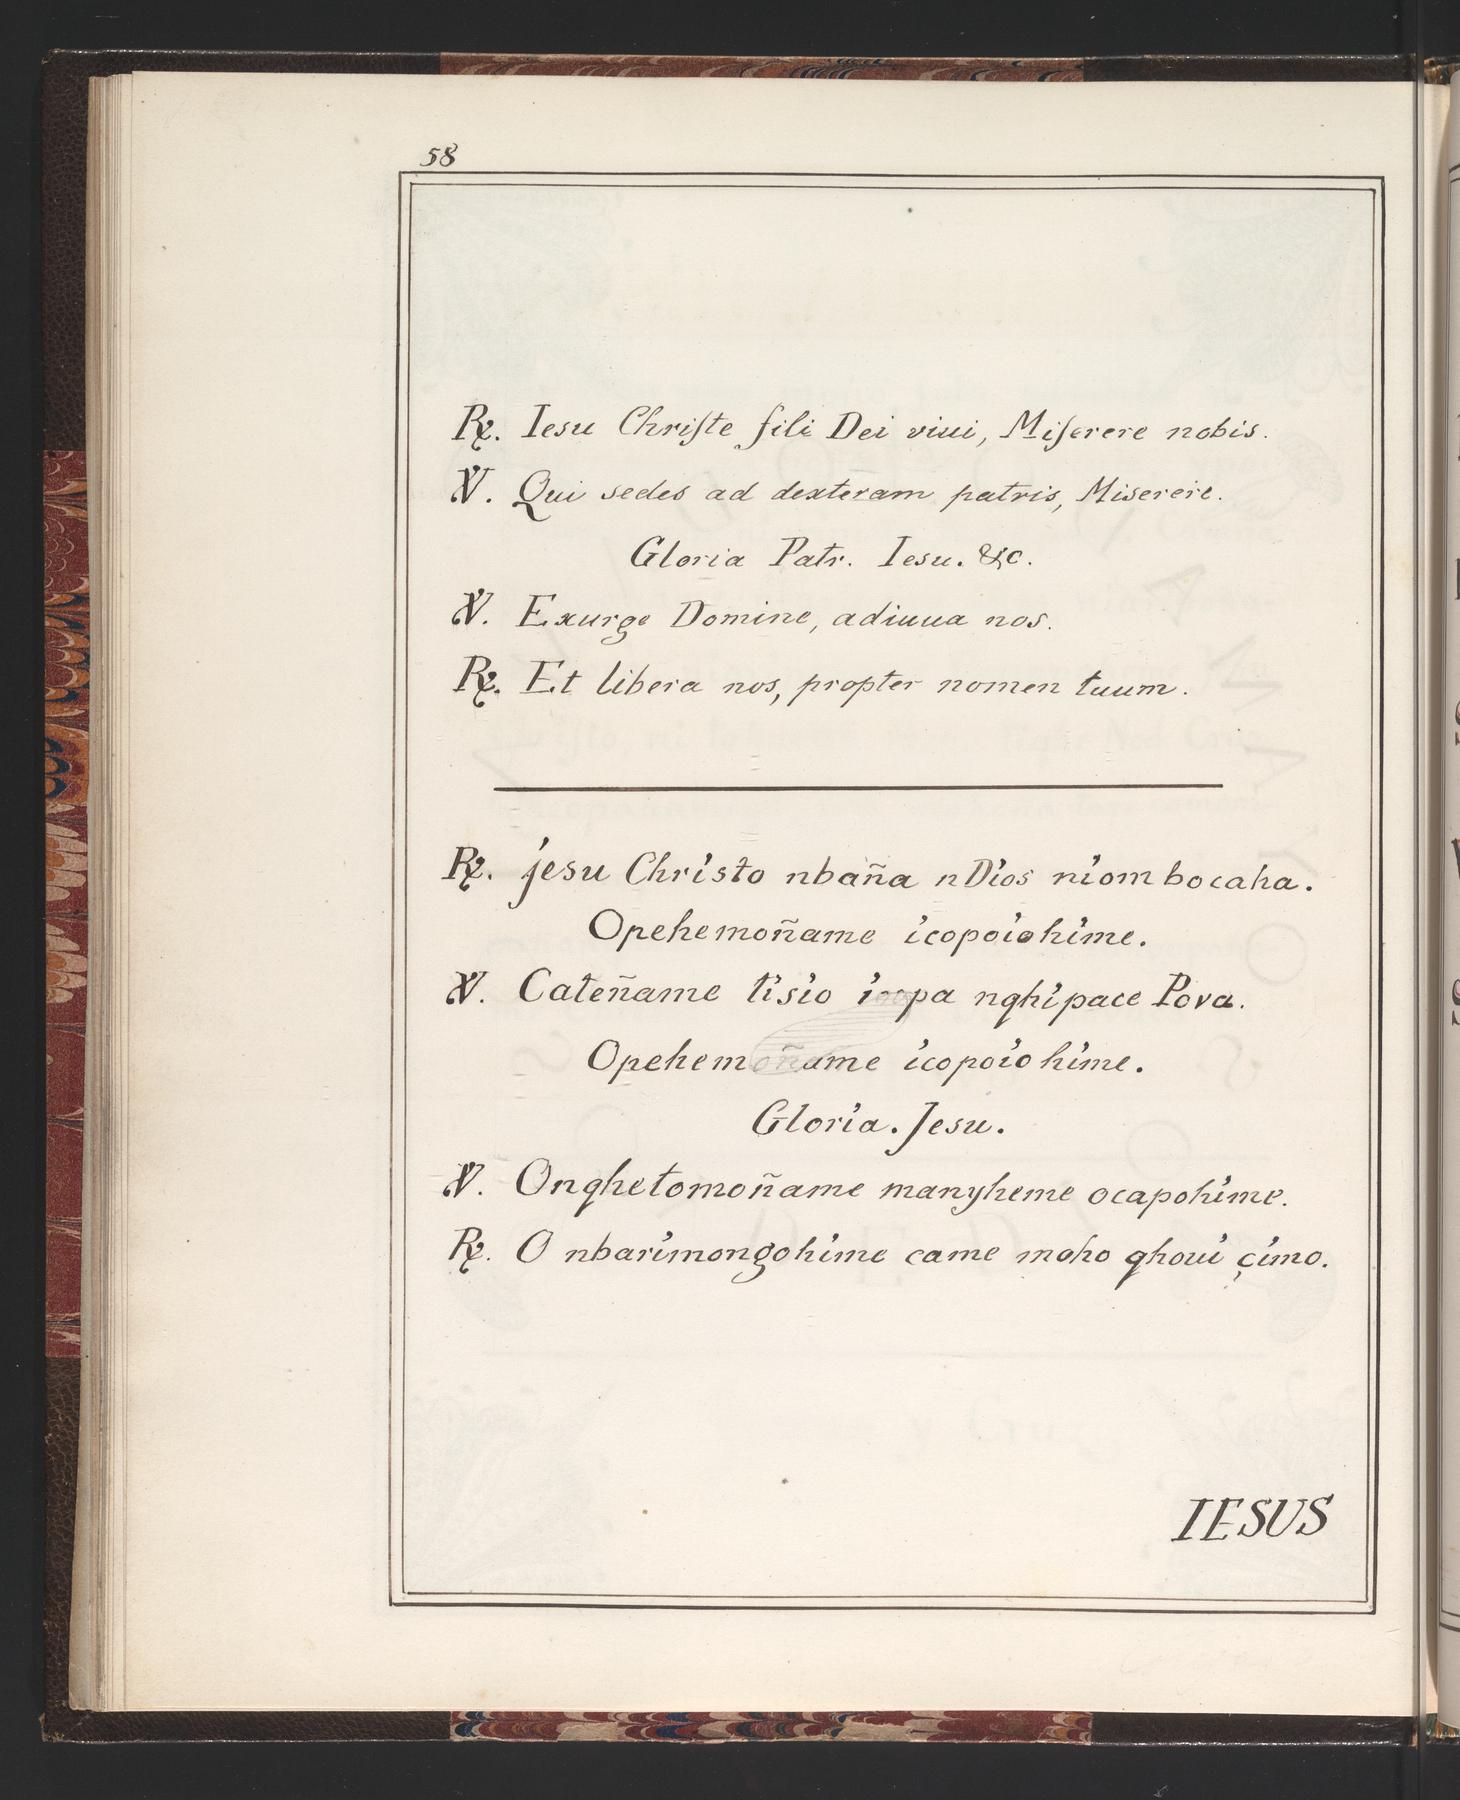 58
℟. Iesu Chriſte fili Dei viui, Miſerere nobis.
℣. Qui sedes ad dexteram patris, Miserere.
Gloria Patr. Iesu. &c.
℣. Exurge Domine, adiuua nos.
℟. Et libera nos, propter nomen tuum.
℟. jesu Christo nbaña nDios niombocaha.
Opehemoñame icopoiohime.
℣. Cateñame tisio ioopa nghipace Pova.
Opehemoñame icopoiohime.
Gloria. Jesu.
℣. Onghetomoñame manyheme ocapohime.
℟. O nbarimongohime came moho ghoui çimo.
IESUS